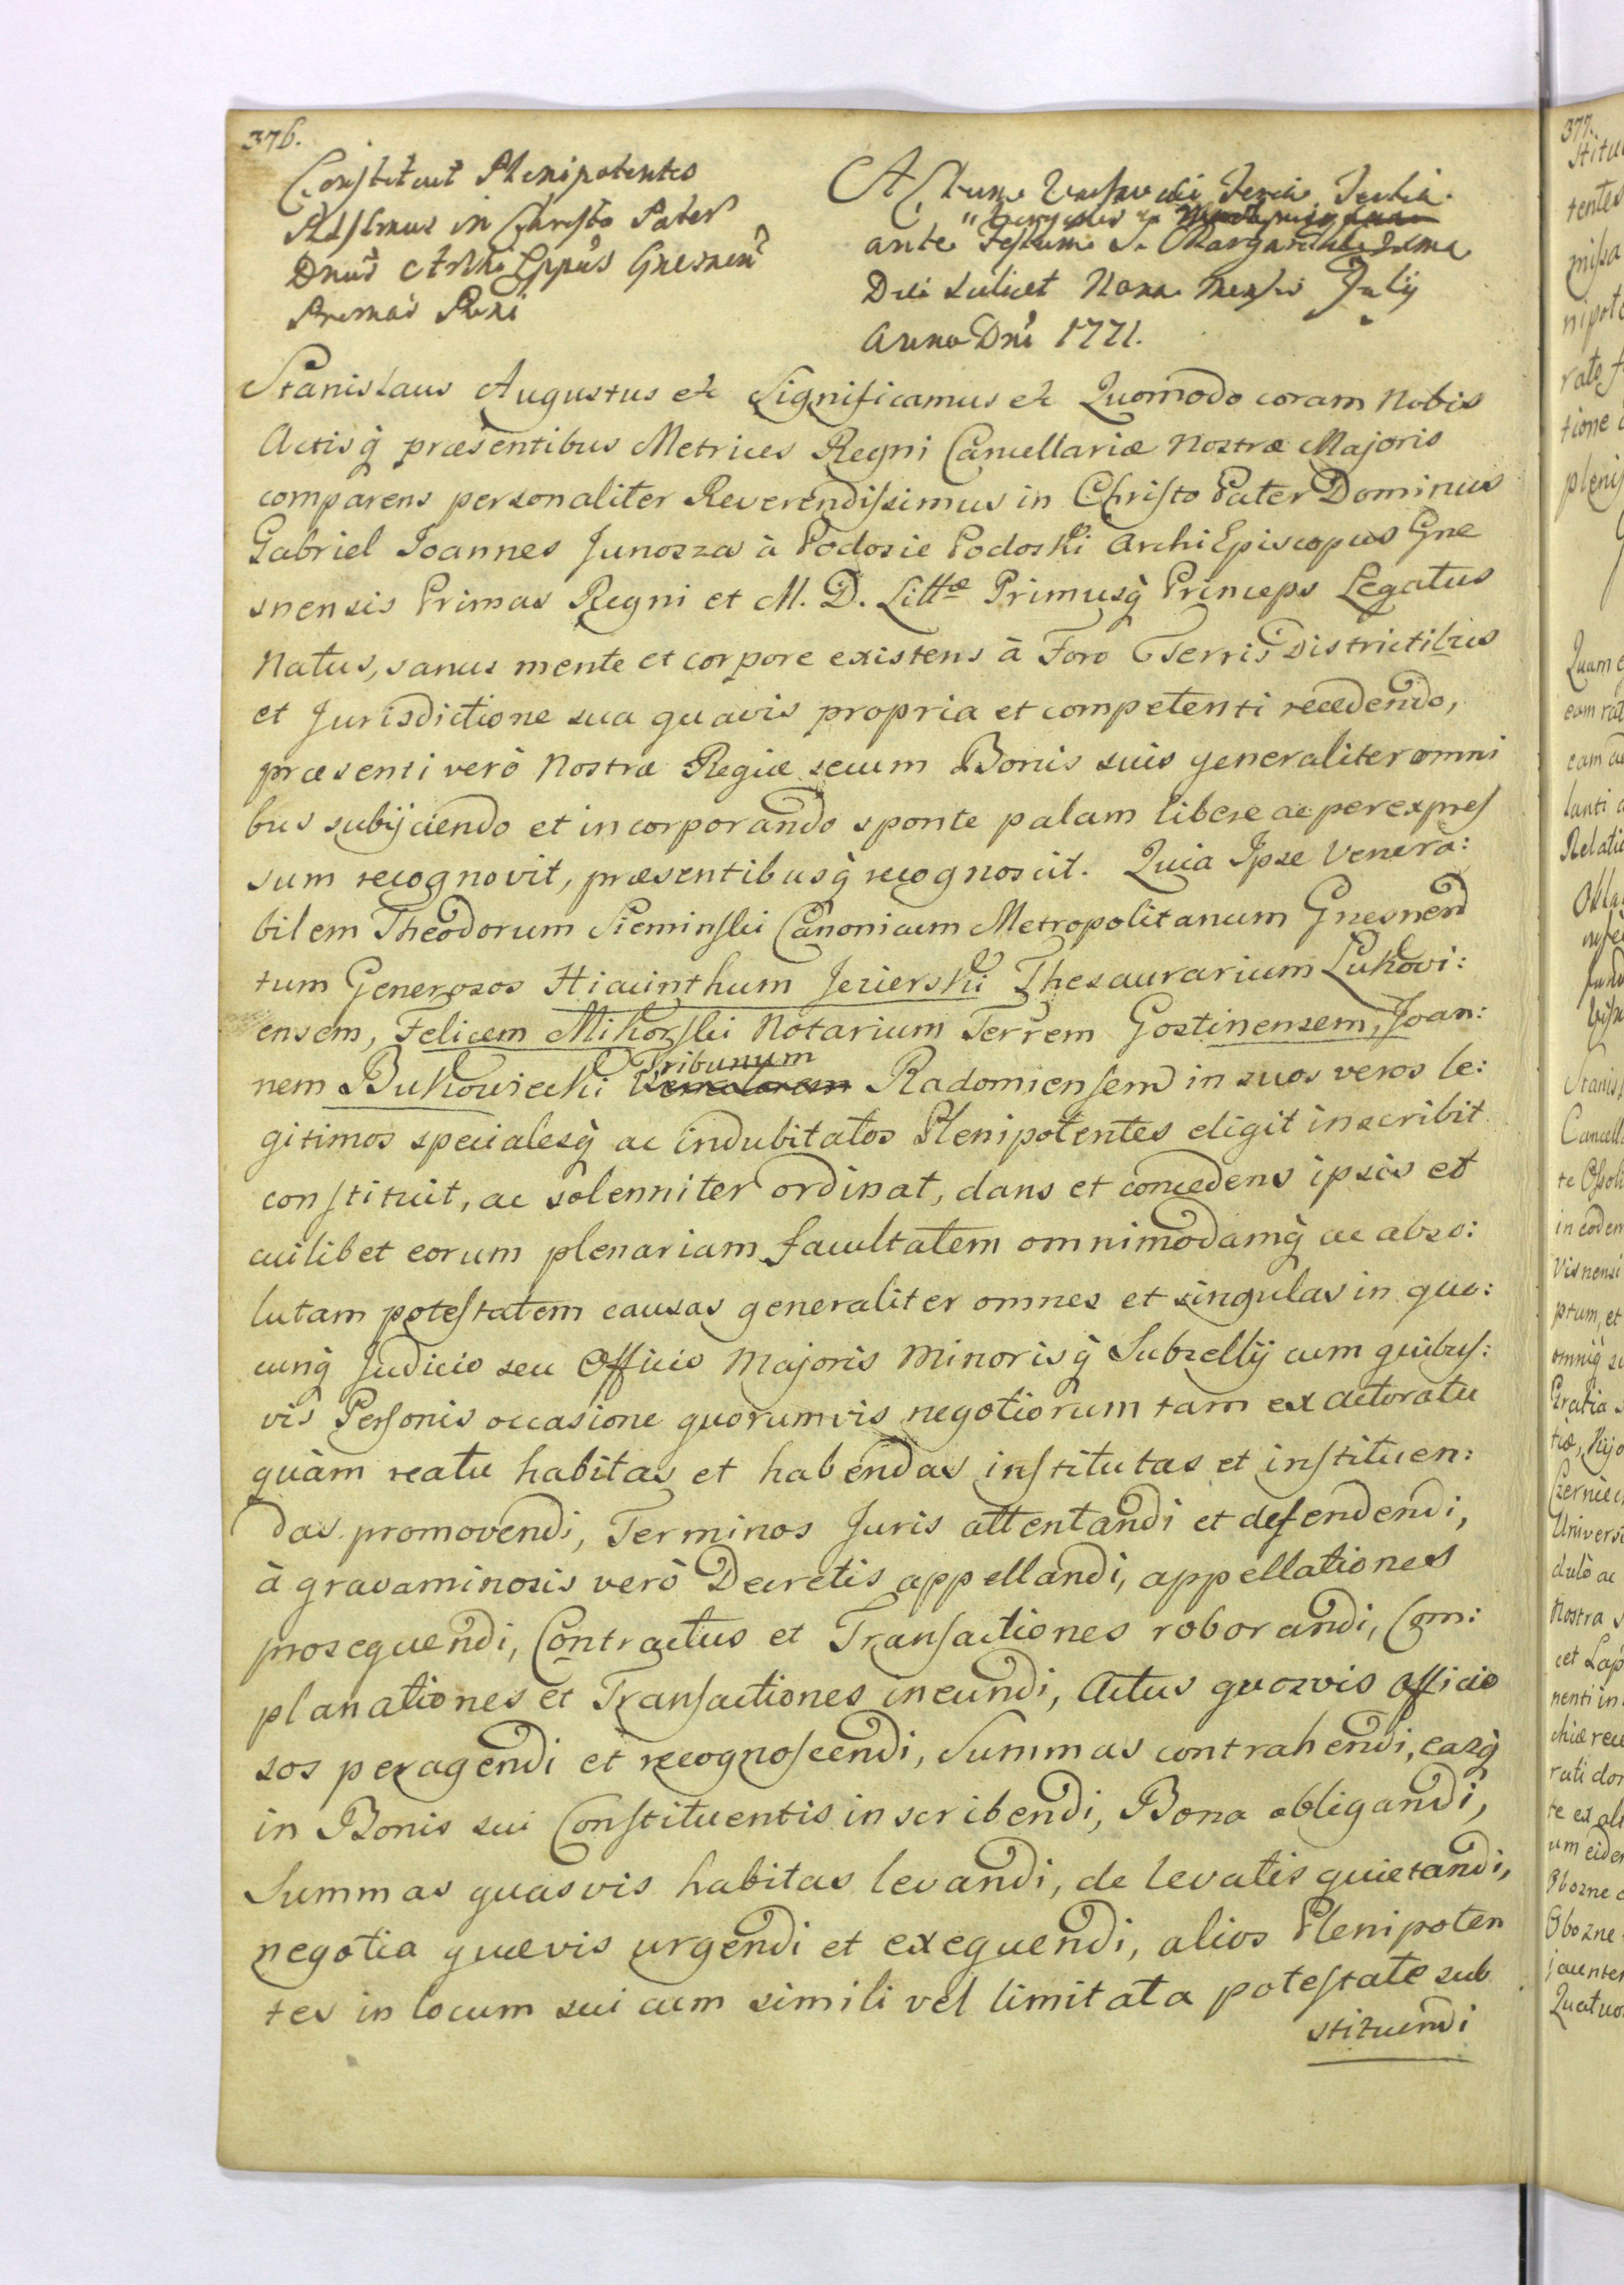 376.
Constituit Plenipotentes
Rdssimus in Christo Pater
Dnus Archi Eppus Gnesnen
Primas Regni
Actum Varsaviæ Feria Tertia
ante Festum S. Margarithæ
Die scilicet Nona Mensis Julij
Anno Dni 1771.
Stanislaus Augustus et Significamus et Quomodo coram Nobis
Actisq̀ præsentibus Metrices Regni Cancellariæ Nostræ Majoris
comparens personaliter Reverendissimus in Christo Pater Dominus
Gabriel Joannes Junosza à Podosie Podoski Archi Episcopus Gne
snensis Primas Regni et M. D. Littæ Primusq̀ Princeps Legatus
Natus, sanus mente et corpore existens à Foro Terris Districtibus
et Jurisdictione sua quavis propria et competenti recedendo,
præsenti verò Nostræ Regiæ secum Bonis suis generaliter omni
bus subijciendo et incorporando sponte palam libere ac per expres
sum recognovit, præsentibusq̀ recognoscit. Quia Ipse Venera:
bilem Theodorum Sieminski Canonicum Metropolitanum Gnesnen
tum Generosos Hiacinthum Jezierski Thesaurarium Lukovi:
ensem, Felicem Mikorski Notarium Terrem Gostinensem, Joan:
nem Bukowiecki Tribunum Radomiensem in suos veros le:
gitimos specialesq̀ ac indubitatos Plenipotentes eligit inscribit
constituit, ac solenniter ordinat, dans et concedens ipsis et
cuilibet eorum plenariam facultatem omnimodamq̀ ac abso:
lutam potestatem causas generaliter omnes et singulas in quo:
cunq̀ Judicio seu Officio Majoris Minorisq̀ Subsellij cum quibus:
vis Personis occasione quorumvis negotiorum tam ex actoratu
quàm reatu habitas et habendas institutas et instituen:
das promovendi, Terminos Juris attentandi et defendendi,
à gravaminosis verò Decretis appellandi, appellationes
prosequendi, Contractus et Transactiones roborandi, Com:
planationes et Transactiones ineundi, Actus quosvis Officio
sos peragendi et recognoscendi, Summas contrahendi, easq̀
in Bonis sui Constituentis inscribendi, Bona obligandi,
Summas quasvis habitas levandi, de levatis quietandi,
negotia quævis urgendi et exequendi, alios Plenipoten
tes in locum sui cum simili vel limitata potestate sub
stituendi
377.